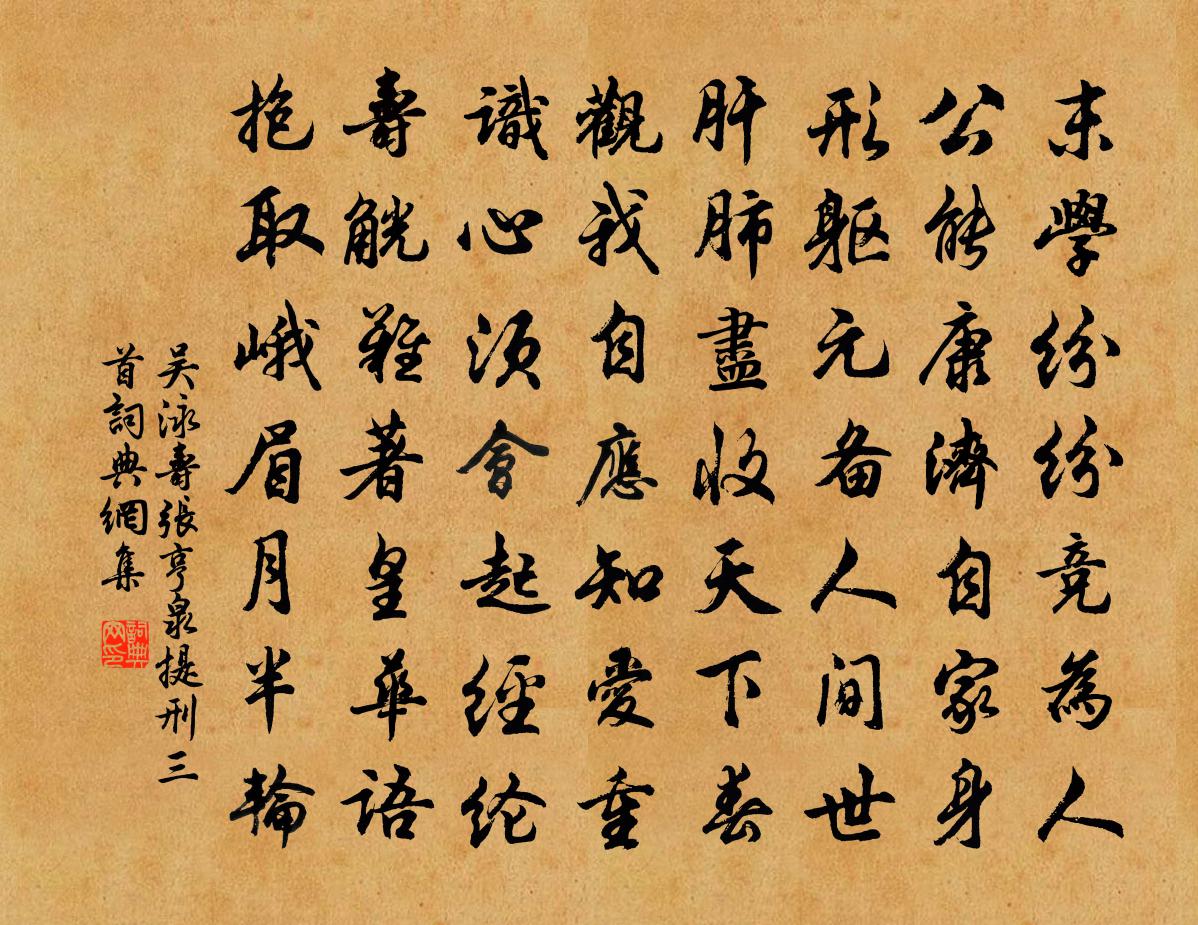 末學紛紛竞為人
公能康濟自家身
形軀元备人间世
肝肺盡收天下春
觀我自應知愛重
識心須會起經纶
壽觥難著皇華語
抱取峨眉月半輪
吴泳壽張亨泉提刑三
首詞典網集
詞典